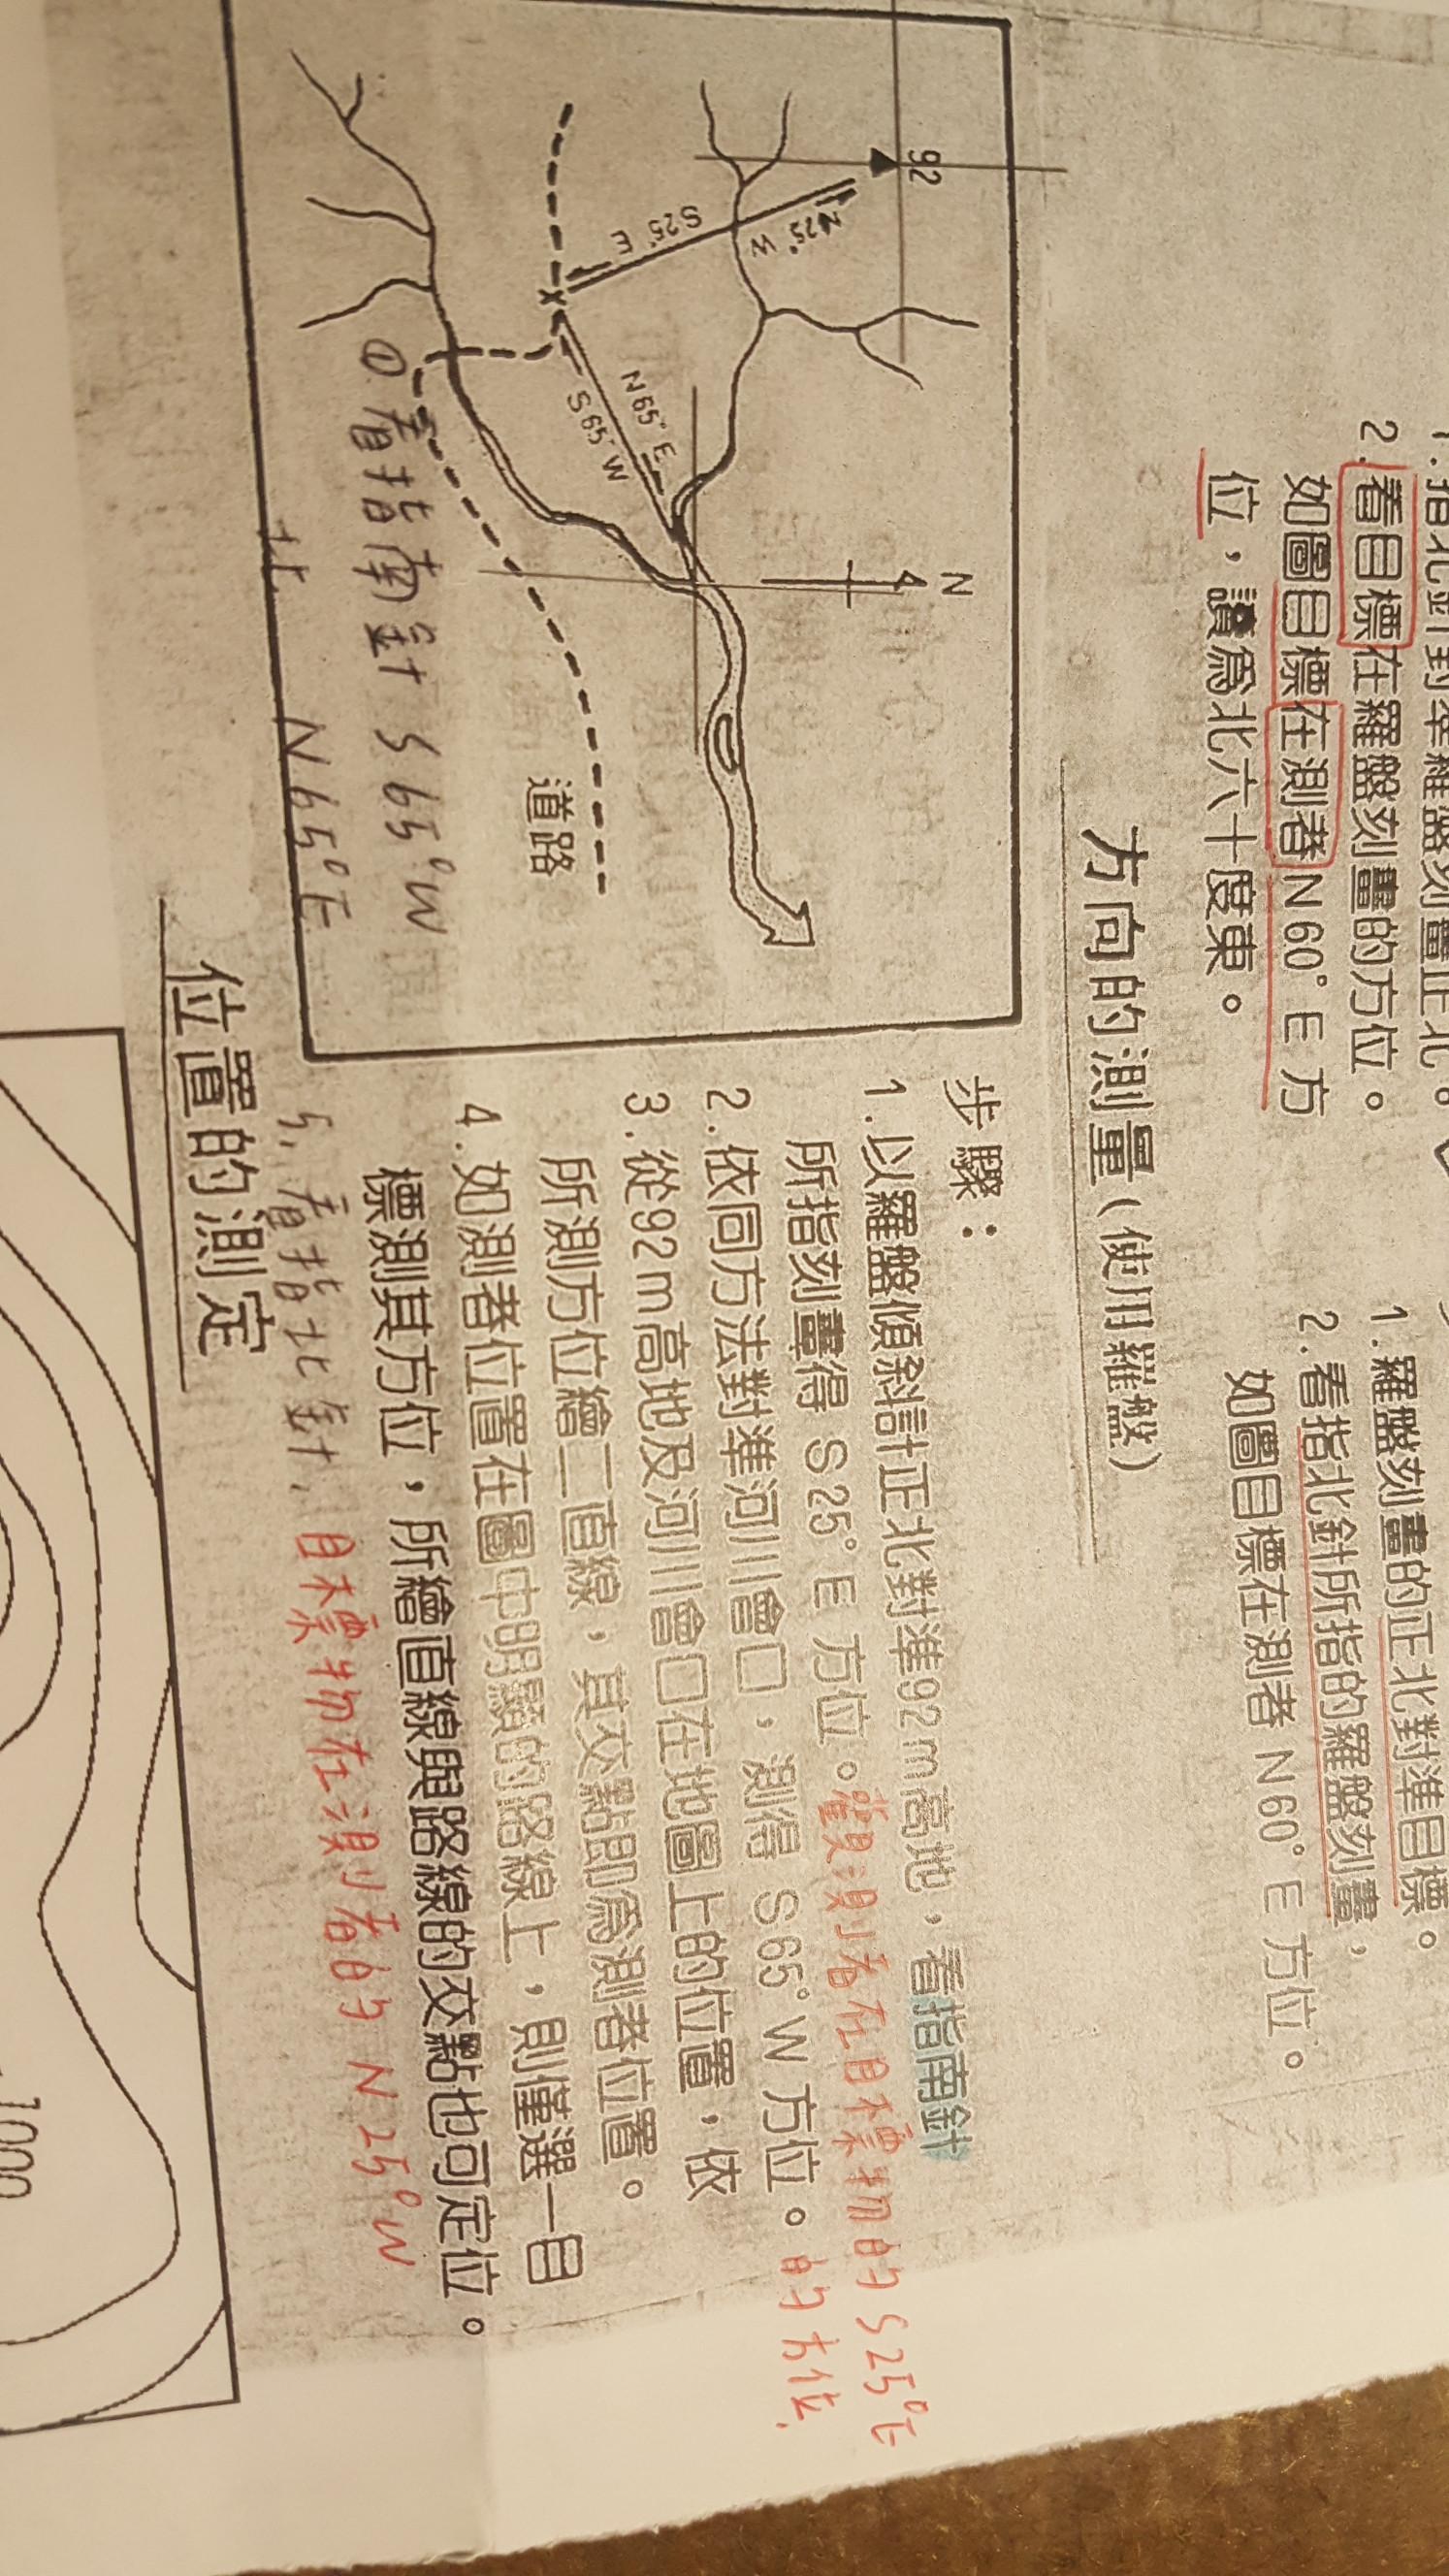 2.看目標在羅盤刻畫的方位。
如圖目標在測者N60°E方
位,讀爲北六十度東。
1.羅盤刻畫的正北對準目標。
2.看指北針所指的羅盤刻畫,
如圖目標在測者N60°E方位。
方向的測量(使用羅盤)
92
N
N25°W
S25°E
N65°E
S65°W
道路
①看指南針 S65°W
北 N65°E
步驟:
1.以羅盤傾斜計正北對準92m高地,看指南針
所指刻畫得 S25°E 方位。觀測者在目標物的S25°E
的方位.
2.依同方法對準河川會口,測得 S65°W 方位。
3.從92m高地及河川會口在地圖上的位置,依
所測方位繪二直線,其交點即為測者位置。
4.如測者位置在圖中明顯的路線上,則僅選一目
標測其方位,所繪直線與路線的交點也可定位。
5.看指北針.目標物在測者的 N25°W
位置的測定
1000